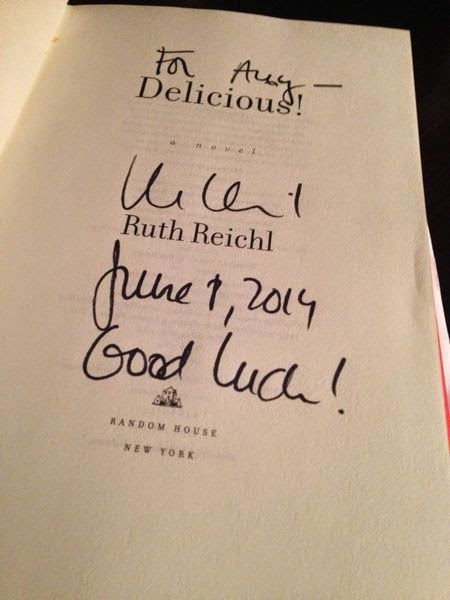 For Amy —
Delicious!
a novel
Ruth Reichl
June 1, 2014
Good luck!
RANDOM HOUSE
NEW YORK